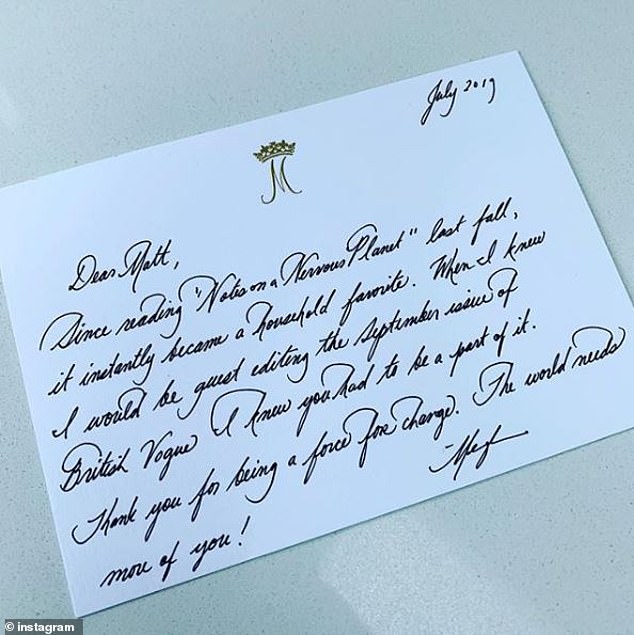 July 2019
M
Dear Matt,
Since reading "Notes on a Nervous Planet" last fall,
it instantly became a household favorite. When I knew
I would be guest editing the September issue of
British Vogue I knew you had to be a part of it.
Thank you for being a force for change. The world needs
more of you!
-Meg
© instagram